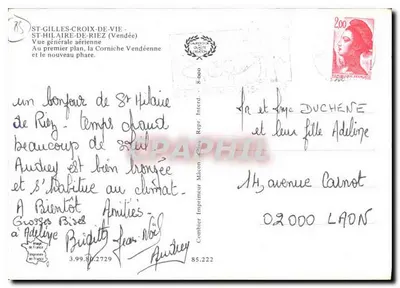 ST-GILLES-CROIX-DE-VIE -
ST-HILAIRE-DE-RIEZ (Vendée)
Vue générale aérienne
Au premier plan, la Corniche Vendéenne
et le nouveau phare.
2,00
un bonjour de St Hilaire
de Riez - temps chaud
beaucoup de soleil
Audrey est bien bronzée
et s'habitue au climat -
A Bientôt Amitiés -
Georges Bises
à Adeline
Brigitte Jean Noël
Audrey
3.99.80.2729
85.222
Combier Imprimeur Mâcon
Mr et Mme DUCHENE
et leur fille Adeline
14, avenue Carnot
02000 LAON